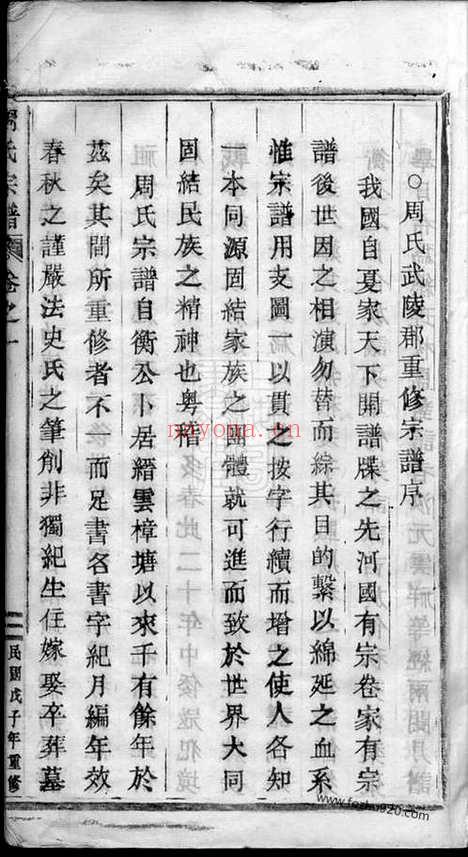 ○周氏武陵郡重修宗譜序
我國自夏家天下開譜牒之先河國有宗卷家有宗
譜後世因之相演勿替而綜其目的繫以綿延之血系
惟宗譜用支圖一以貫之按字行續而增之使人各知
一本同源固結家族之團體就可進而致於世界大同
固結民族之精神也粵稽
周氏宗譜自衡公卜居縉雲樟塘以來千有餘年於
茲矣其間所重修者不一而足書名書字紀月編年效
春秋之謹嚴法史氏之筆削非獨紀生住嫁娶卒葬墓
周氏宗譜 卷之一
民國戊子年重修
nayona.com
www.foshu920.com